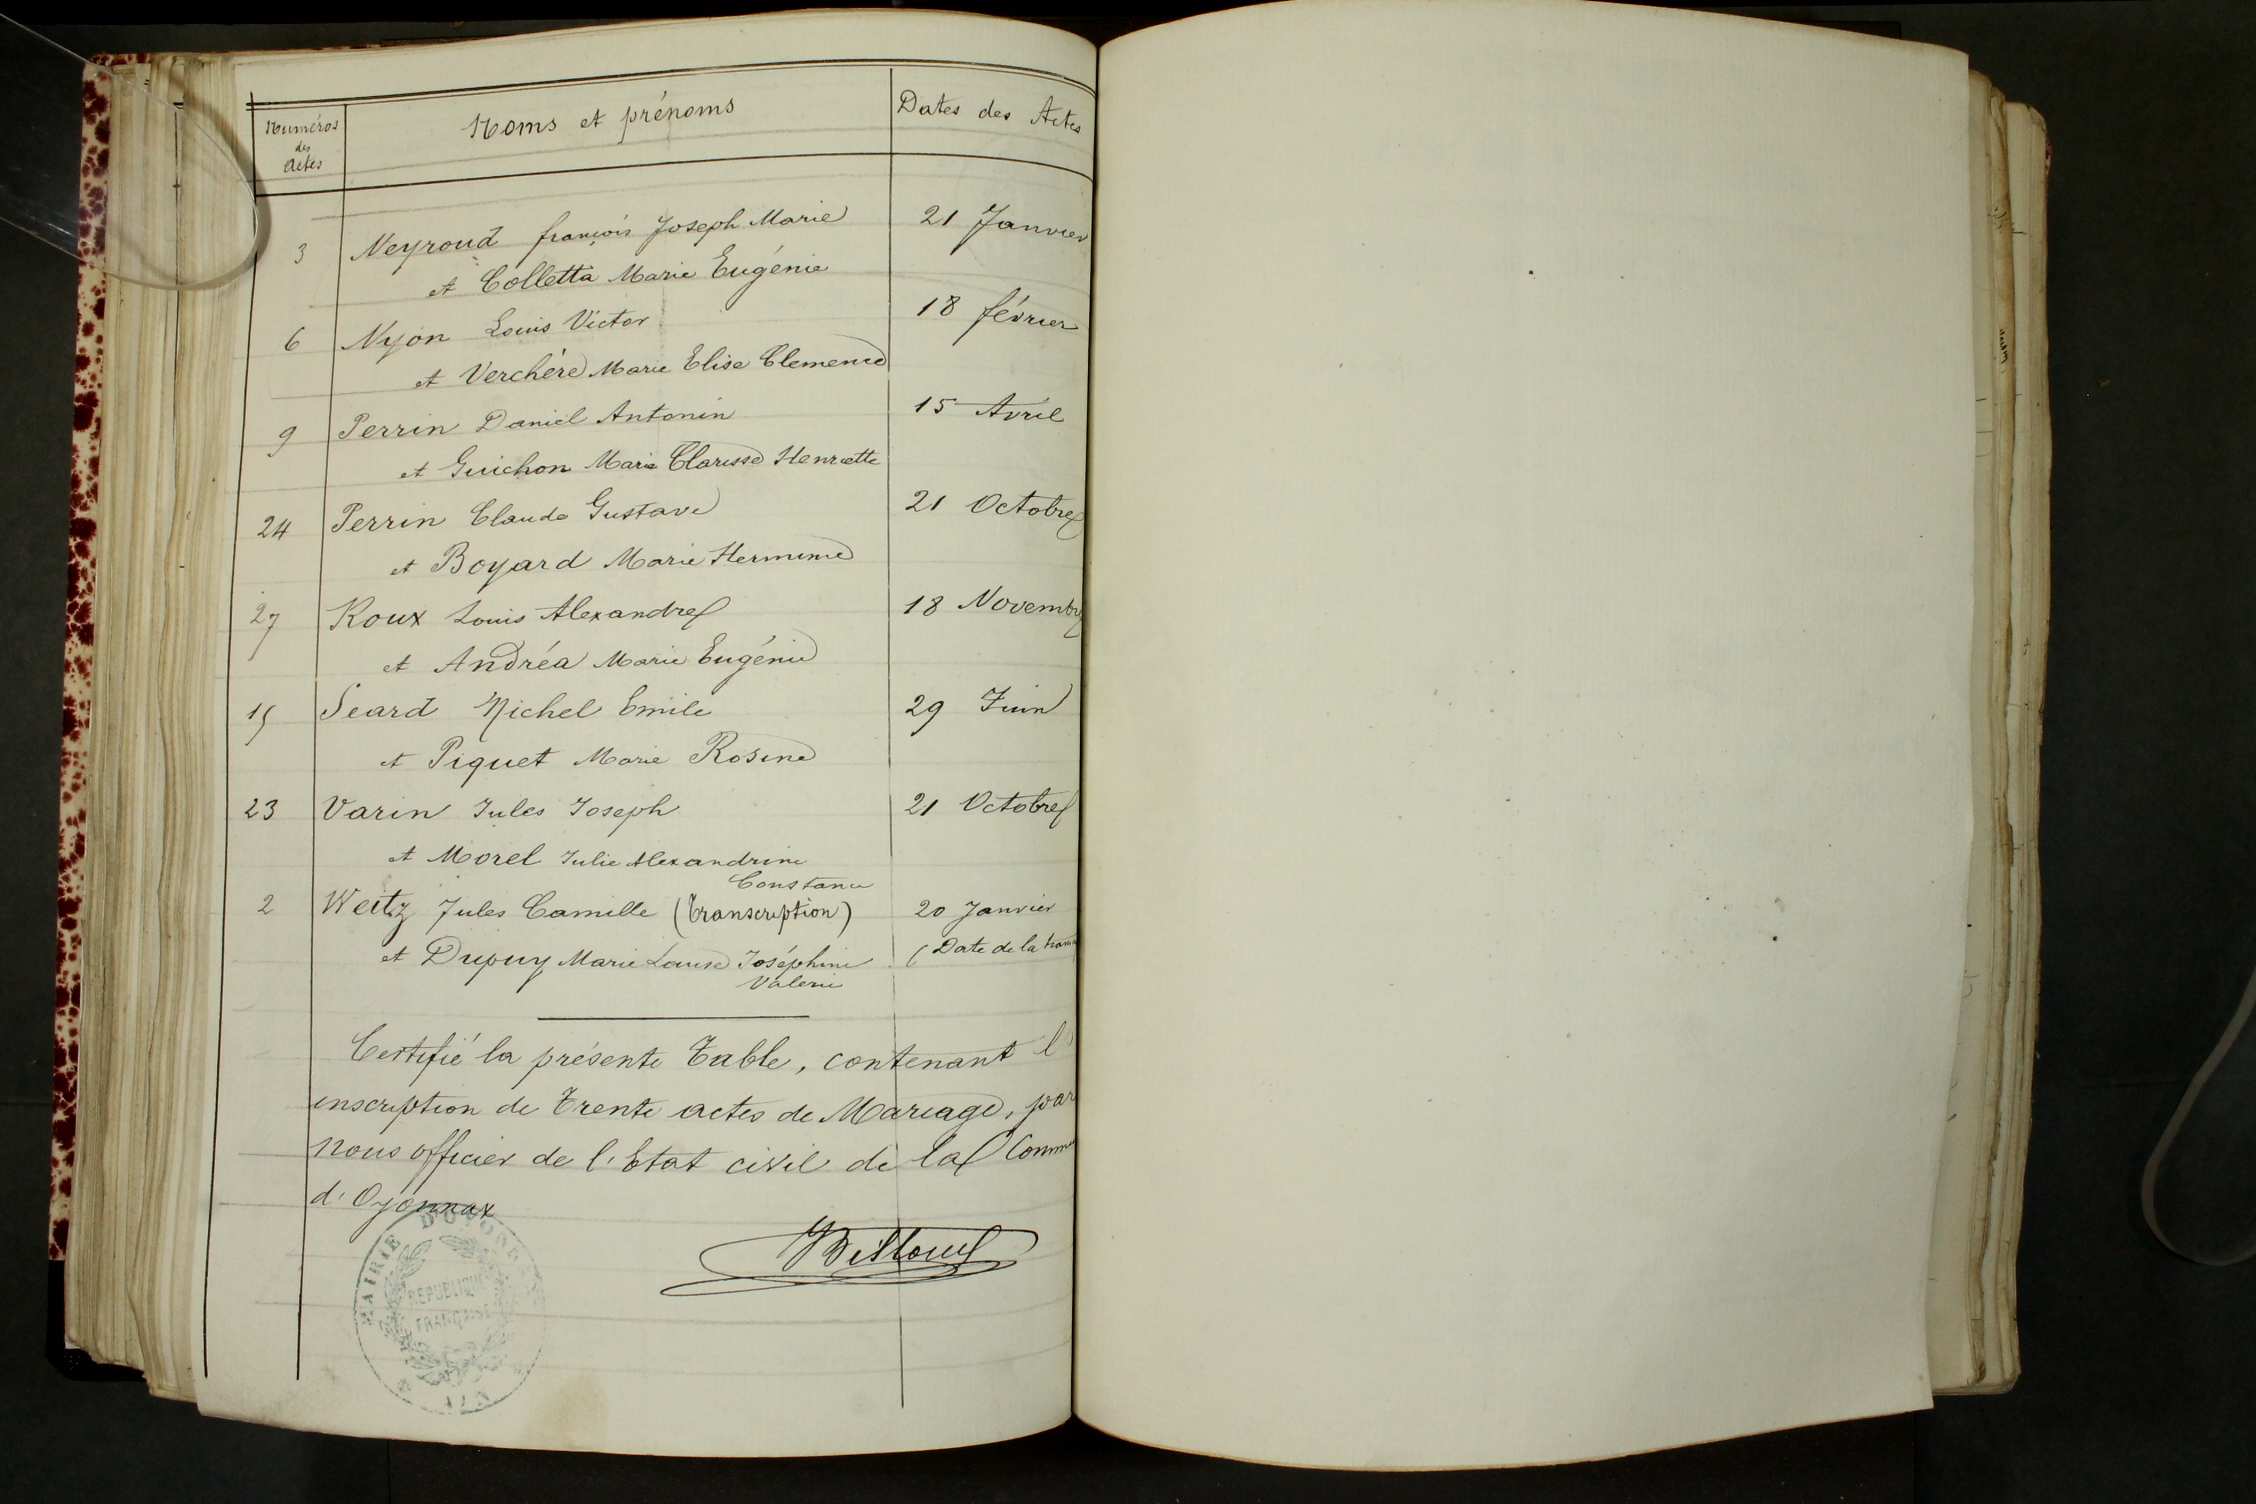 Numéros des Actes Noms et prénoms Dates des Actes
3 Neyroud françois Joseph Marie 21 Janvier
et Colletta Marie Eugénie
6 Nyon Louis Victor 18 février
et Verchère Marie Elise Clemence
9 Perrin Daniel Antonin 15 Avril
et Guichon Marie Clarisse Henriette
24 Perrin Claude Gustave 21 Octobre
et Boyard Marie Hermine
27 Roux Louis Alexandre 18 Novembre
et Andréa Marie Eugénie
15 Seard Michel Emile 29 Juin
et Piquet Marie Rosine
23 Varin Jules Joseph 21 Octobre
et Morel Julie Alexandrine
Constance
2 Weitz Jules Camille (Transcription) 20 Janvier
et Dupuy Marie Louise Joséphine (Date de la
Valerie
Certifié la présente Table, contenant l'
inscription de Trente actes de Mariage, par
nous officier de l'Etat civil de la
d'Oyonnax
MAIRIE D'OYONNAX
RÉPUBLIQUE
FRANÇAISE
AIN